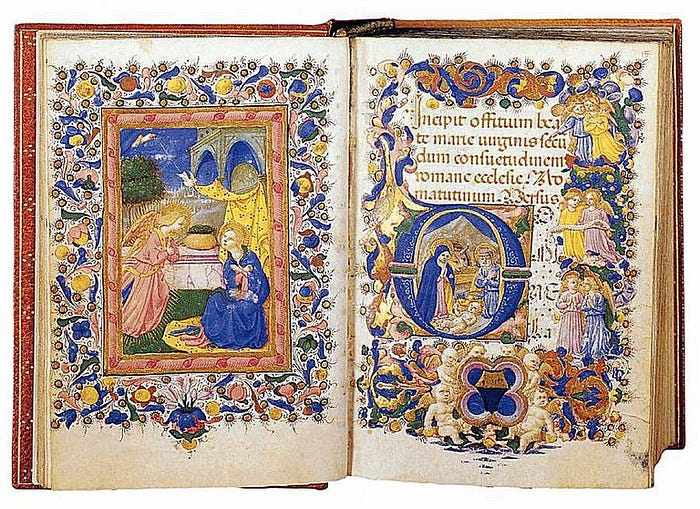 Incipit offitium bea
te marie uirginis secu
dum consuetudinem
romane ecclesie. Ad
matutinum. Versus
D O
NE
La